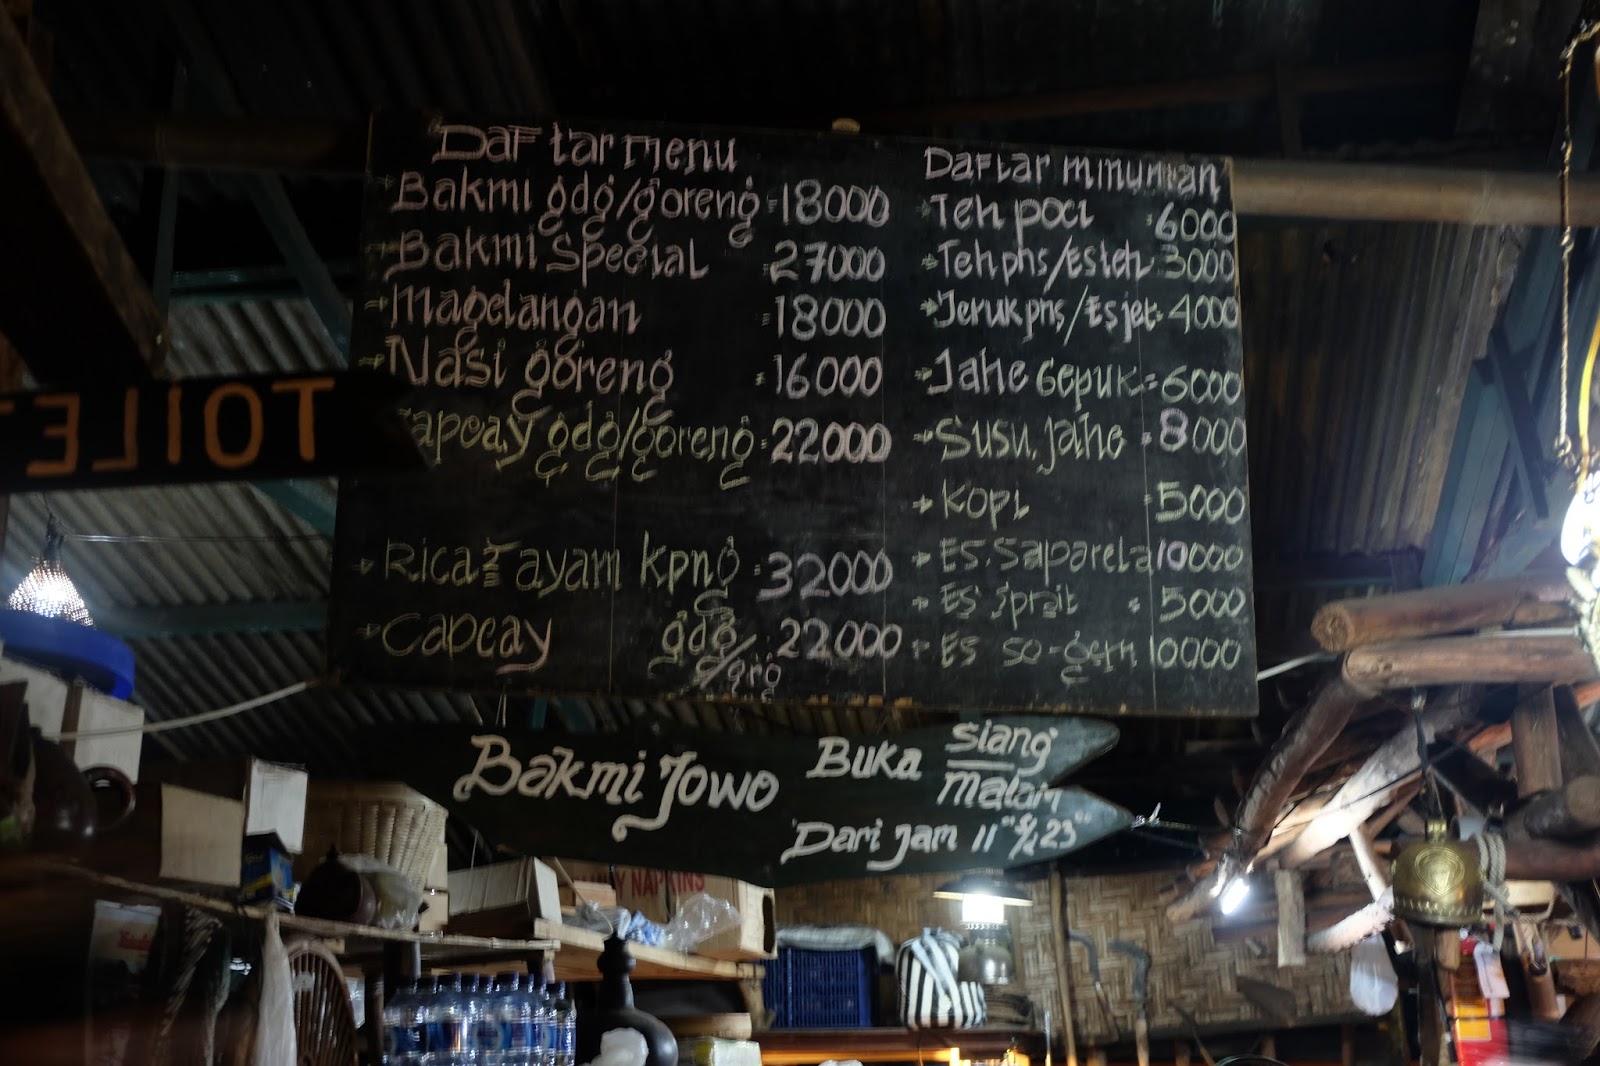 Daftar Menu
Bakmi gdg/goreng = 18000
Bakmi Special = 27000
Magelangan = 18000
Nasi goreng = 16000
Capcay gdg/goreng = 22000
Rica² ayam kpng = 32000
Capcay gdg/grg 22000
Daftar minuman
Teh poci = 6000
Teh pns/Es teh 3000
Jeruk pns/Es jet = 4000
Jahe Gepuk = 6000
Susu Jahe = 8000
Kopi = 5000
ES. Saparela 10000
ES Sprait = 5000
ES so-gem 10000
TOILET
Bakmi Jowo Buka siang malam
Dari jam 11 23
NAPKINS